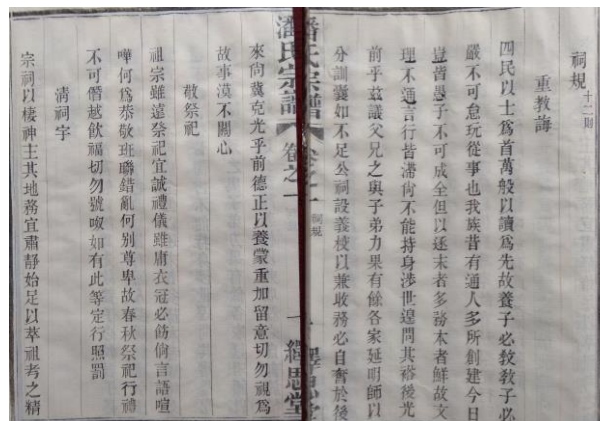 祠規 十二則
重教誨
四民以士爲首萬般以讀爲先故養子必教教子必
嚴不可怠玩從事也我族昔有通人多所創建今日
豈皆愚子不可成全但以逐末者多務本者鮮故文
理不通言行皆滯尙不能持身涉世遑問其裕後光
前乎茲議父兄之與子弟力果有餘各家延明師以
分訓囊如不足公祠設義校以兼收務必自奮於後
潘氏宗譜 卷之一 祠規 一 繹思堂
來尙冀克光乎前德正以養蒙重加留意切勿視爲
故事漠不關心
敬祭祀
祖宗雖遠祭祀宜誠禮儀雖庸衣冠必飭倘言語喧
嘩何爲恭敬班聯錯亂何别尊卑故春秋祭祀行禮
不可僭越飲福切勿號呶如有此等定行照罰
清祠宇
宗祠以棲神主其地務宜肅靜始足以萃祖考之精